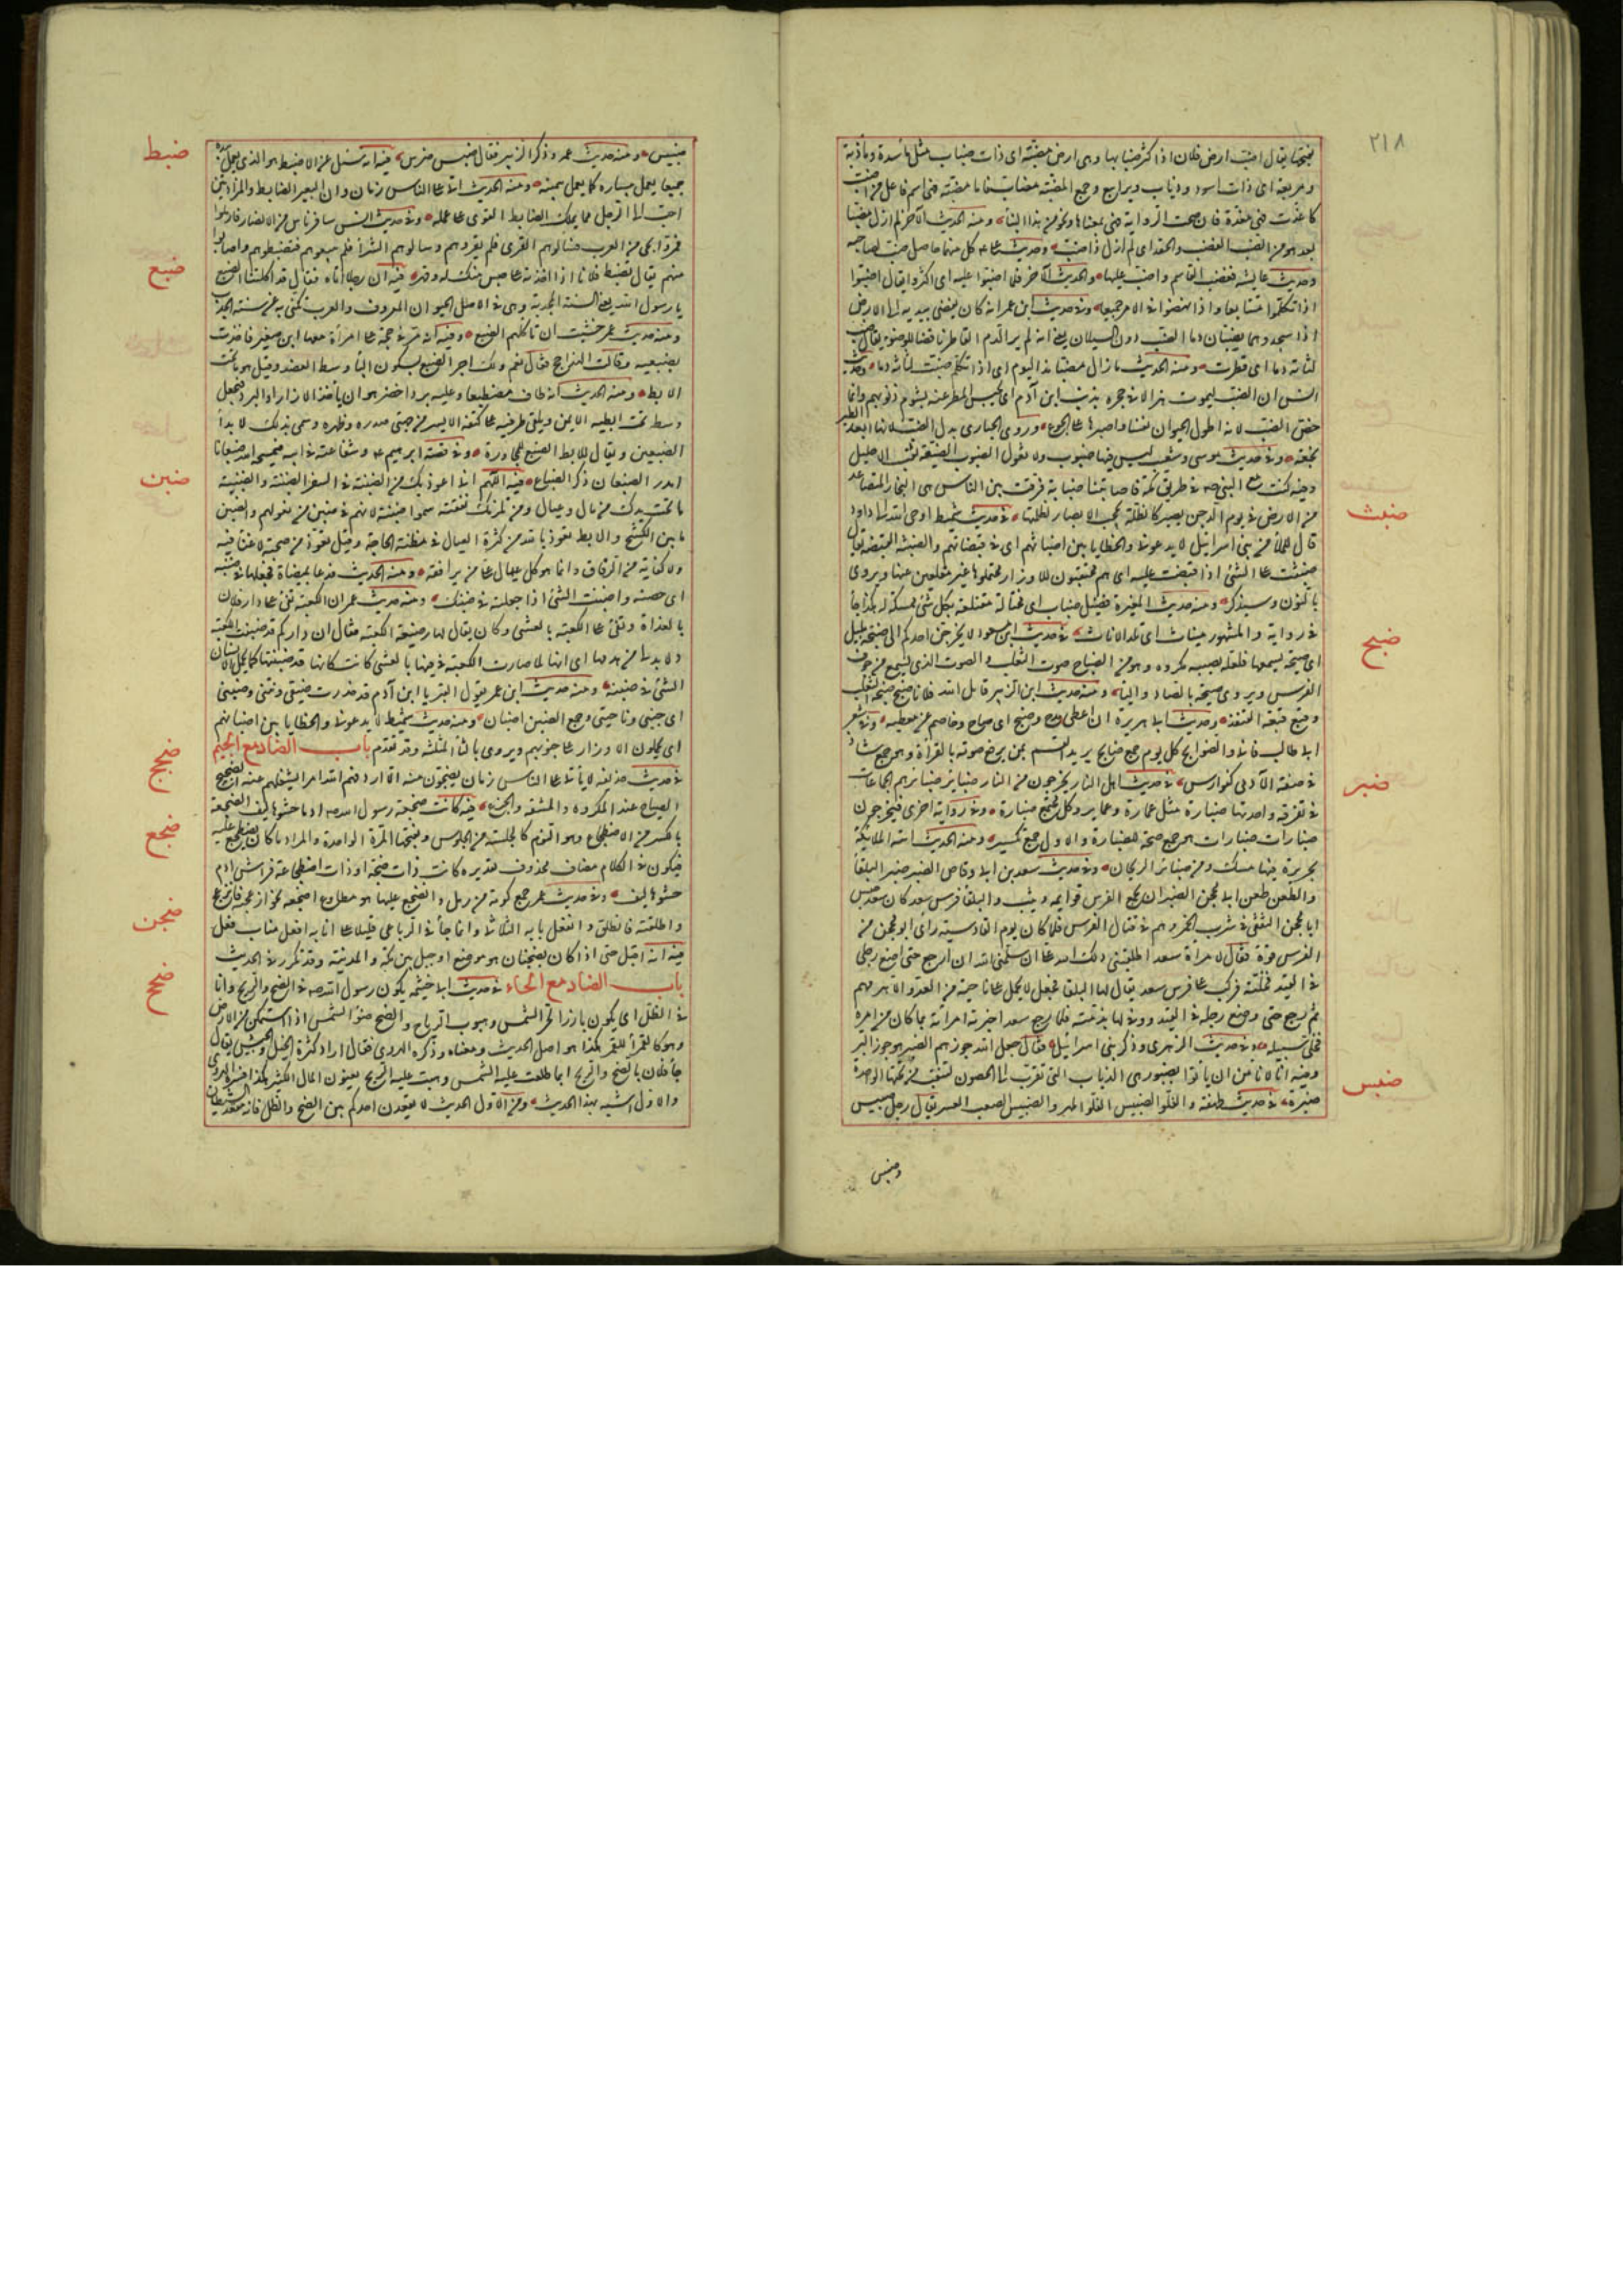 ٢١٨
بفتحها يقال اضبت ارض فلان اذا كثر ضبابها وهى ارض مضبة اى ذات ضباب مثل مأسدة ومذأبة
ومربعة اى ذات اسود وذياب ويرابيع وجمع المضبة مضاب فاما مضبة فهى اسم فاعل من اضبت
كاغدت فهى مغدة فان صحت الرواية فهى بمعناها ونحو من هذا البناء ومنه الحديث الآخر لم ازل مضبا
بعد هو من الضب الغضب والحقد اى لم ازل ذا ضب وحديث على كل منهما حامل ضب لصاحبه
وحديث عايشة فغضب القاسم واضب عليها والحديث الآخر فلما اضبوا عليه اى اكثروا يقال اضبوا
اذا تكلموا متتابعا واذا نهضوا فى الامر جميعا وفى حديث ابن عمر انه كان يفضى بيديه الى الارض
اذا سجد وهما يضبان دما الضب دون السيلان يعنى انه لم ير الدم القاطر ناقضا للوضوء يقال ضبت
لثاته دما اى قطرت ومنه الحديث ما زال مضبا مذ اليوم اى اذا تكلم ضبت لثاته دما وحديث
انس ان الضب ليموت هزالا فى جحره بذنب ابن آدم اى يحبس المطر عنه بشؤم ذنوبهم وانما
خص الضب لانه اطول الحيوان نفسا واصبرها على الجوع وروى الحبارى بدل الضب لانها ابعد الطير
نجعة وفى حديث موسى وشعيب ليس فيها ضبوب ولا ثعول الضبوب الضيقة ثقب الاحليل
وفيه كنت مع النبى صه فى طريق مكة فاصابتنا ضبابة فرقت بين الناس هى البخار المتصاعد
من الارض فى يوم الدجن يصير كالظلة يحجب الابصار لظلمتها ضبث فى حديث شميط اوحى الله الى داود
قال للملأ من بنى اسرائيل لا يدعونى والخطايا بين اضباثهم اى فى قبضاتهم والضبثة القبضة يقال
ضبثت على الشئ اذا قبضت عليه اى هم محتقبون للاوزار محتملوها غير مقلعين عنها ويروى
بالنون وسيذكر ومنه حديث المغيرة فضل ضباث اى مختالة معتلقة بكل شئ ممسكة له هكذا جا
فى رواية والمشهور مئناث اى تلد الاناث ضبح فى حديث ابن مسعود لا يخرجن احدكم الى ضبحة بليل
اى صيحة يسمعها فلعله يصيبه مكروه وهو من الضباح صوت الثعلب والصوت الذى يسمع من جوف
الفرس ويروى صيحة بالصاد واليا ومنه حديث ابن الزبير قاتل الله فلانا ضبح ضبحة الثعلب
وقبع قبعة القنفذ وحديث ابى هريرة ان اعطى مدح وضبح اى صاح وخاصم عن معطيه وفى شعر
ابى طالب فانى والضوابح كل يوم جمع ضابح يريد القسم بمن يرفع صوته بالقراءة وهو جمع شاذ
فى صفة الآدمى كفوارس ضبر فى حديث اهل النار يخرجون من النار ضبائر ضبائر هم الجماعات
فى تفرقة واحدتها ضبارة مثل عمارة وعمائر وكل مجتمع ضبارة وفى رواية اخرى فيخرجون
ضبارات ضبارات هو جمع صحة للضبارة والاول جمع تكسير ومنه الحديث اتته الملائكة
بحريرة فيها مسك ومن ضبائر الريحان وفى حديث سعد بن ابى وقاص الضبر ضبر البلقا
والطعن طعن ابى محجن الضبر ان يجمع الفرس قوايمه ويثب والبلقا فرس سعد كان سعد حبس
ابا محجن الثقفى فى شرب الخمر وهم فى قتال الفرس فلما كان يوم القادسية رأى ابو محجن من
الفرس قوة فقال لامرأة سعد اطلقينى ولك الله على ان سلمنى الله ان ارجع حتى اضع رجلى
فى القيد فحلته فركب على فرس سعد يقال لها البلقا فجعل لا يحمل على ناحية من العدو الا هزمهم
ثم رجع حتى وضع رجله فى القيد ووفى لها بذمته فلما رجع سعد اخبرته امرأته بما كان من امره
فخلى سبيله وفى حديث الزهرى وذكر بنى اسرائيل فقال جعل الله جوزهم الضبر هو جوز البر
وفيه انا لا نأمن ان يأتوا بضبور هى الدباب التى تقرب الى الحصون لتنقب من تحتها الواحدة
ضبرة ضبس فى حديث طهفة والفلو الضبيس الفلو المهر والضبيس الصعب العسر يقال رجل ضبس
وضبس
ضبث
ضبح
ضبر
ضبس
ضبيس ومنه حديث عمر وذكر الزبير فقال ضبس ضرس ضبط فيه انه سئل عن الاضبط هو الذى يعمل بيديه
جميعا يعمل بيساره كما يعمل بيمينه ومنه الحديث ياتى على الناس زمان وان البعير الضابط والمزادتين
احب الى الرجل مما يملك الضابط القوى على عمله وفى حديث انس سافر ناس من الانصار فارملوا
فمروا بحى من العرب فسألوهم القرى فلم يقروهم وسالوهم الشرا فلم يبيعوهم فضبطوهم واصابوا
منهم يقال تضبطت فلانا اذا اخذته على حبس منك له وقهر ضبع فيه ان رجلا اتاه فقال قد اكلتنا الضبع
يا رسول الله يعنى السنة المجدبة وهى فى الاصل الحيوان المعروف والعرب تكنى به عن سنة الجدب
ومنه حديث عمر خشيت ان تأكلهم الضبع وفيه انه مر فى حجة على امرأة معها ابن صغير فاخذت
بضبعيه وقالت الهذا حج فقال نعم ولك اجر الضبع بسكون البا وسط العضد وقيل هو ما تحت
الابط ومنه الحديث انه طاف مضطبعا وعليه برد اخضر هو ان يأخذ الازار او البرد فيجعل
وسطه تحت ابطه الايمن ويلقى طرفيه على كتفه الايسر من جهتى صدره وظهره وسمى بذلك لابدا
الضبعين ويقال للابط الضبع للمجاورة وفى قصة ابرهيم عه وشفاعته فى ابيه فيمسخه الله ضبعانا
امدر الضبعان ذكر الضباع ضبن فيه اللهم انى اعوذ بك من الضبنة فى السفر الضبنة والضبنة
ما تحت يدك من مال وعيال ومن تلزمك نفقته سموا ضبنة لانهم فى ضبن من يعولهم والضبن
ما بين الكشح والابط تعوذ بالله من كثرة العيال فى مظنة الحاجة وقيل تعوذ من صحبة من لا غنا فيه
ولا كفاية من الرفاق وانما هو كل وعيال على من يرافقه ومنه الحديث فدعا بميضاة فجعلها فى ضبنه
اى حضنه واضبنت الشئ اذا جعلته فى ضبنك ومنه حديث عمر ان الكعبة تفئ على دار فلان
بالغداة وتفئ على الكعبة بالعشى وكان يقال لها رضيعة الكعبة فقال ان داركم قد ضبنت الكعبة
ولا بد لى من هدمها اى انها لما صارت الكعبة فى فيئها بالعشى كانت كانها قد ضبنتها كما يحمل الانسان
الشئ فى ضبنه ومنه حديث ابن عمر يقول القبر يا ابن آدم قد حذرت ضيقى ونتنى وضبنى
اى جنبى وناحيتى وجمع الضبن اضبان ومنه حديث شميط لا يدعونى والخطايا بين اضبانهم
اى يحملون الاوزار على جنوبهم ويروى بالثا المثلثة وقد تقدم باب الضاد مع الجيم
فى حديث حذيفة لا ياتى على الناس زمان يضجون منه الا اردفهم الله امرا يشغلهم عنه الضجيج
الصياح عند المكروه والمشقة والجزع فيه كانت ضجعة رسول الله صه ادما حشوها ليف الضجعة
بالكسر من الاضطجاع وهو النوم كالجلسة من الجلوس وبفتحها المرة الواحدة والمراد ما كان يضطجع عليه
فيكون فى الكلام مضاف محذوف تقديره كانت ذات ضجعته او ذات اضطجاعه فراش ادم
حشوها ليف وفى حديث عمر جمع كومة من رمل وانضجع عليها هو مطاوع اضجعه نحو ازعجه فانزعج
واطلقته فانطلق وانفعل بابه الثلاثى وانما جا فى الرباعى قليلا على انابة افعل مناب فعل
فيه انه اقبل حتى اذا كان بضجنان هو موضع او جبل بين مكة والمدينة وقد تكرر فى الحديث
باب الضاد مع الحاء فى حديث ابى خيثمة يكون رسول الله صه فى الضح والريح وانا
فى الظل اى يكون بارزا لحر الشمس وهبوب الرياح والضح ضوء الشمس اذا استمكن من الارض
وهو كالقمراء للقمر هكذا هو اصل الحديث ومعناه وذكره الهروى فقال اراد كثرة الخيل والجيش يقال
جا فلان بالضح والريح اى بما طلعت عليه الشمس وهبت عليه الريح يعنون المال الكثير هكذا فسره الهروى
والاول اشبه بهذا الحديث ومن الاول الحديث لا يقعدن احدكم بين الضح والظل فانه مقعد الشيطان
ضبط
ضبع
ضبن
ضجج
ضجع
ضجن
ضحح